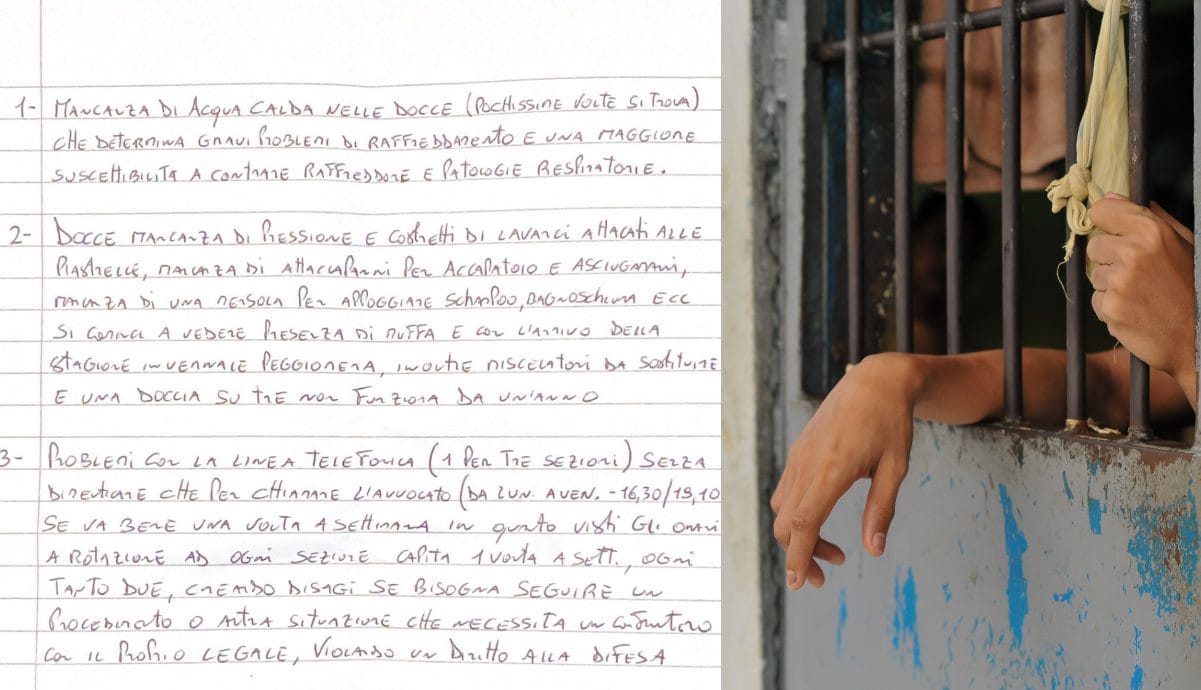 1- MANCANZA DI ACQUA CALDA NELLE DOCCE (POCHISSIME VOLTE SI TROVA)
CHE DETERMINA GRAVI PROBLEMI DI RAFFREDDAMENTO E UNA MAGGIORE
SUSCETTIBILITA A CONTRARRE RAFFREDDORE E PATOLOGIE RESPIRATORIE.
2- DOCCE MANCANZA DI PRESSIONE E COSTRETTI DI LAVARCI ATTACATI ALLE
PIASTRELLE, MANCANZA DI ATTACCAPANNI PER ACCAPATOIO E ASCIUGAMANI,
MANCANZA DI UNA MENSOLA PER APPOGGIARE SCHAMPOO, BAGNOSCHIUMA ECC
SI COMINCIA A VEDERE PRESENZA DI MUFFA E CON L'ARRIVO DELLA
STAGIONE INVERNALE PEGGIORERA, INOLTRE MISCELATORI DA SOSTITUIRE
E UNA DOCCIA SU TRE NON FUNZIONA DA UN'ANNO
3- PROBLEMI CON LA LINEA TELEFONICA (1 PER TRE SEZIONI) SENZA
DIRETTIVE CHE PER CHIAMARE L'AVVOCATO (DA LUN. A VEN. - 16,30/19,10
SE VA BENE UNA VOLTA A SETTIMANA IN QUANTO VISTI GLI ORARI
A ROTAZIONE AD OGNI SEZIONE CAPITA 1 VOLTA A SETT., OGNI
TANTO DUE, CREANDO DISAGI SE BISOGNA SEGUIRE UN
PROCEDIMENTO O ALTRA SITUAZIONE CHE NECESSITA UN CONFRONTO
CON IL PROPRIO LEGALE, VIOLANDO UN DIRITTO ALLA DIFESA